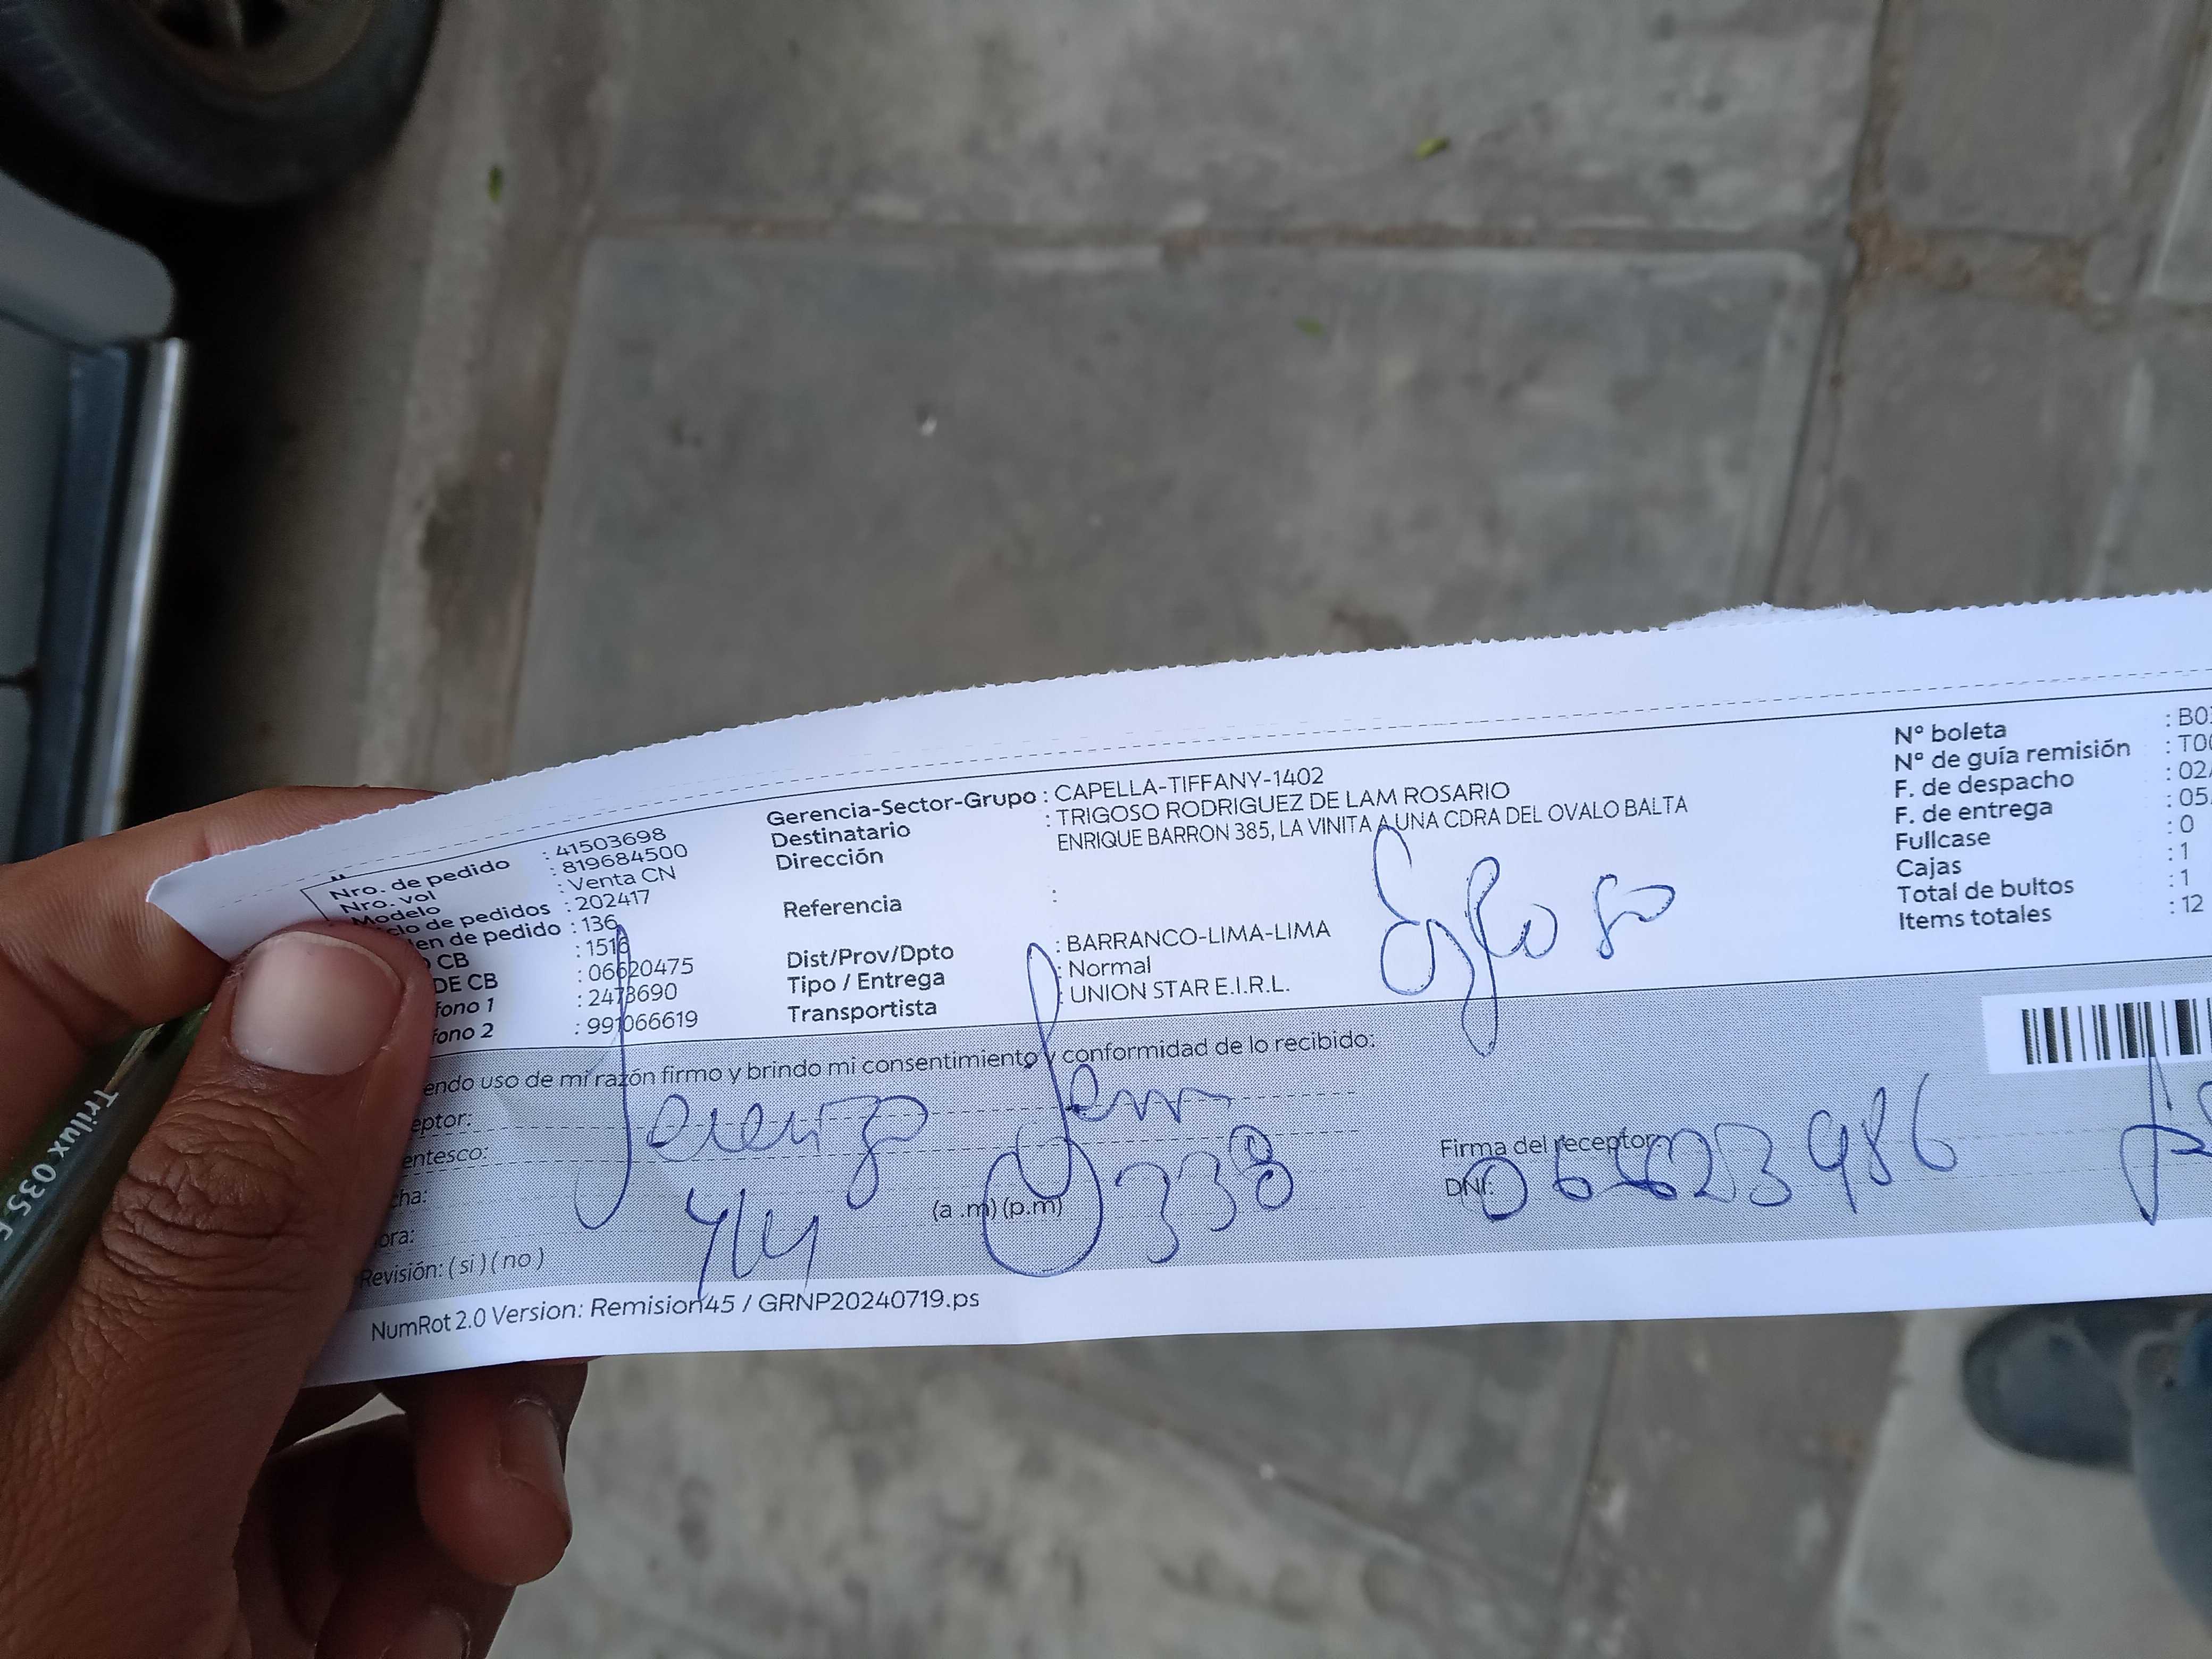 Nro. de pedido : 41503698
Nro. vol : 819684500
Modelo : Venta CN
clo de pedidos : 202417
en de pedido : 136
CB : 1516
DE CB : 06620475
fono 1 : 2473690
fono 2 : 991066619
Gerencia-Sector-Grupo : CAPELLA-TIFFANY-1402
Destinatario : TRIGOSO RODRIGUEZ DE LAM ROSARIO
Dirección ENRIQUE BARRON 385, LA VINITA A UNA CDRA DEL OVALO BALTA
Referencia :
Dist/Prov/Dpto : BARRANCO-LIMA-LIMA
Tipo / Entrega : Normal
Transportista : UNION STAR E.I.R.L.
Esposo
N° boleta : B0
N° de guía remisión : T00
F. de despacho : 02/
F. de entrega : 05
Fullcase : 0
Cajas : 1
Total de bultos : 1
Items totales : 12
endo uso de mi razón firmo y brindo mi consentimiento y conformidad de lo recibido:
eptor: Lam
entesco:
cha:
ora: (a .m) (p.m) 338
Revisión: ( si ) ( no )
Firma del receptor
DNI: 06623986
NumRot 2.0 Version: Remision45 / GRNP20240719.ps
Trilux 035